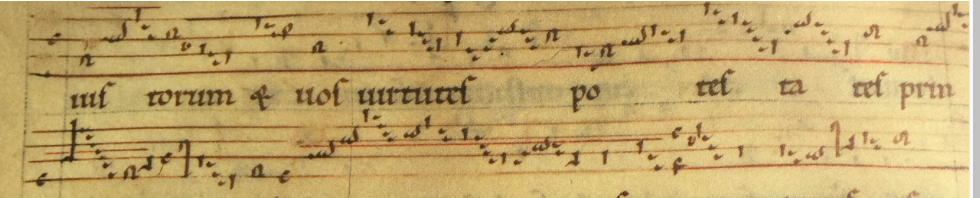 iuſ torum & uoſ uirtuteſ po teſ ta teſ prin